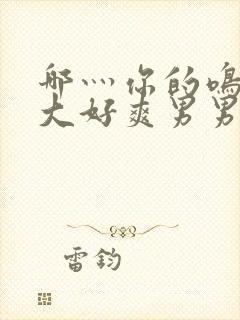 哪灬你的鳴
大好爽男男
雷鈞